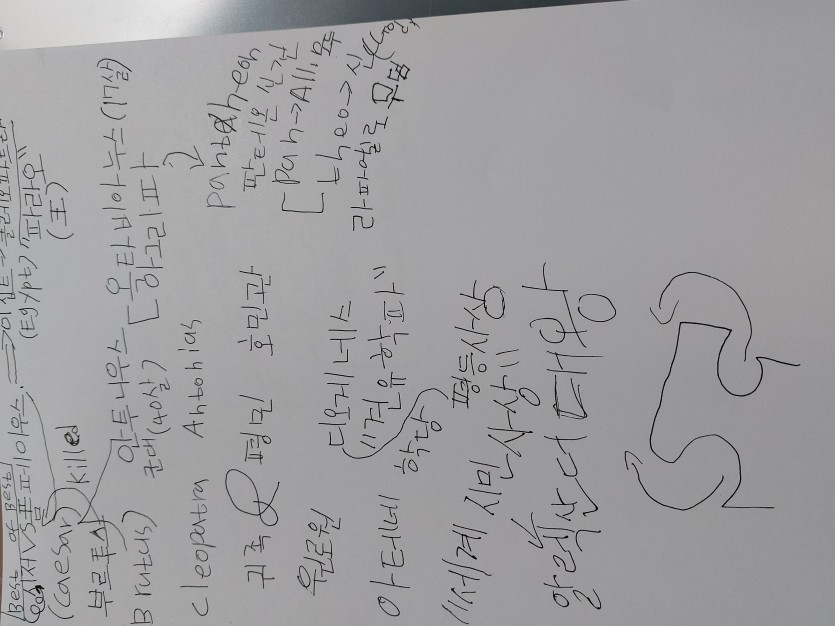 Best of Best
시저 VS 폼페이우스 ⇒ 이집트 → 클레오파트라
(Caesar) (Egypt) "파라오"
killed (王)
부르투스 안투니우스 - 옥타비아누스 (17살)
Brutus) 군대 (40살) [ 하그리파
Cleopatra Antonius
귀족 & 평민 호민관
Pantheon
판테온 신전
[Pan → All. 모두
theo → 신
라파엘로 무덤
원로원
디오게네스
아테네 학당 "견유학파"
"세계 시민 사상" 평등사상
알렉산더 대왕